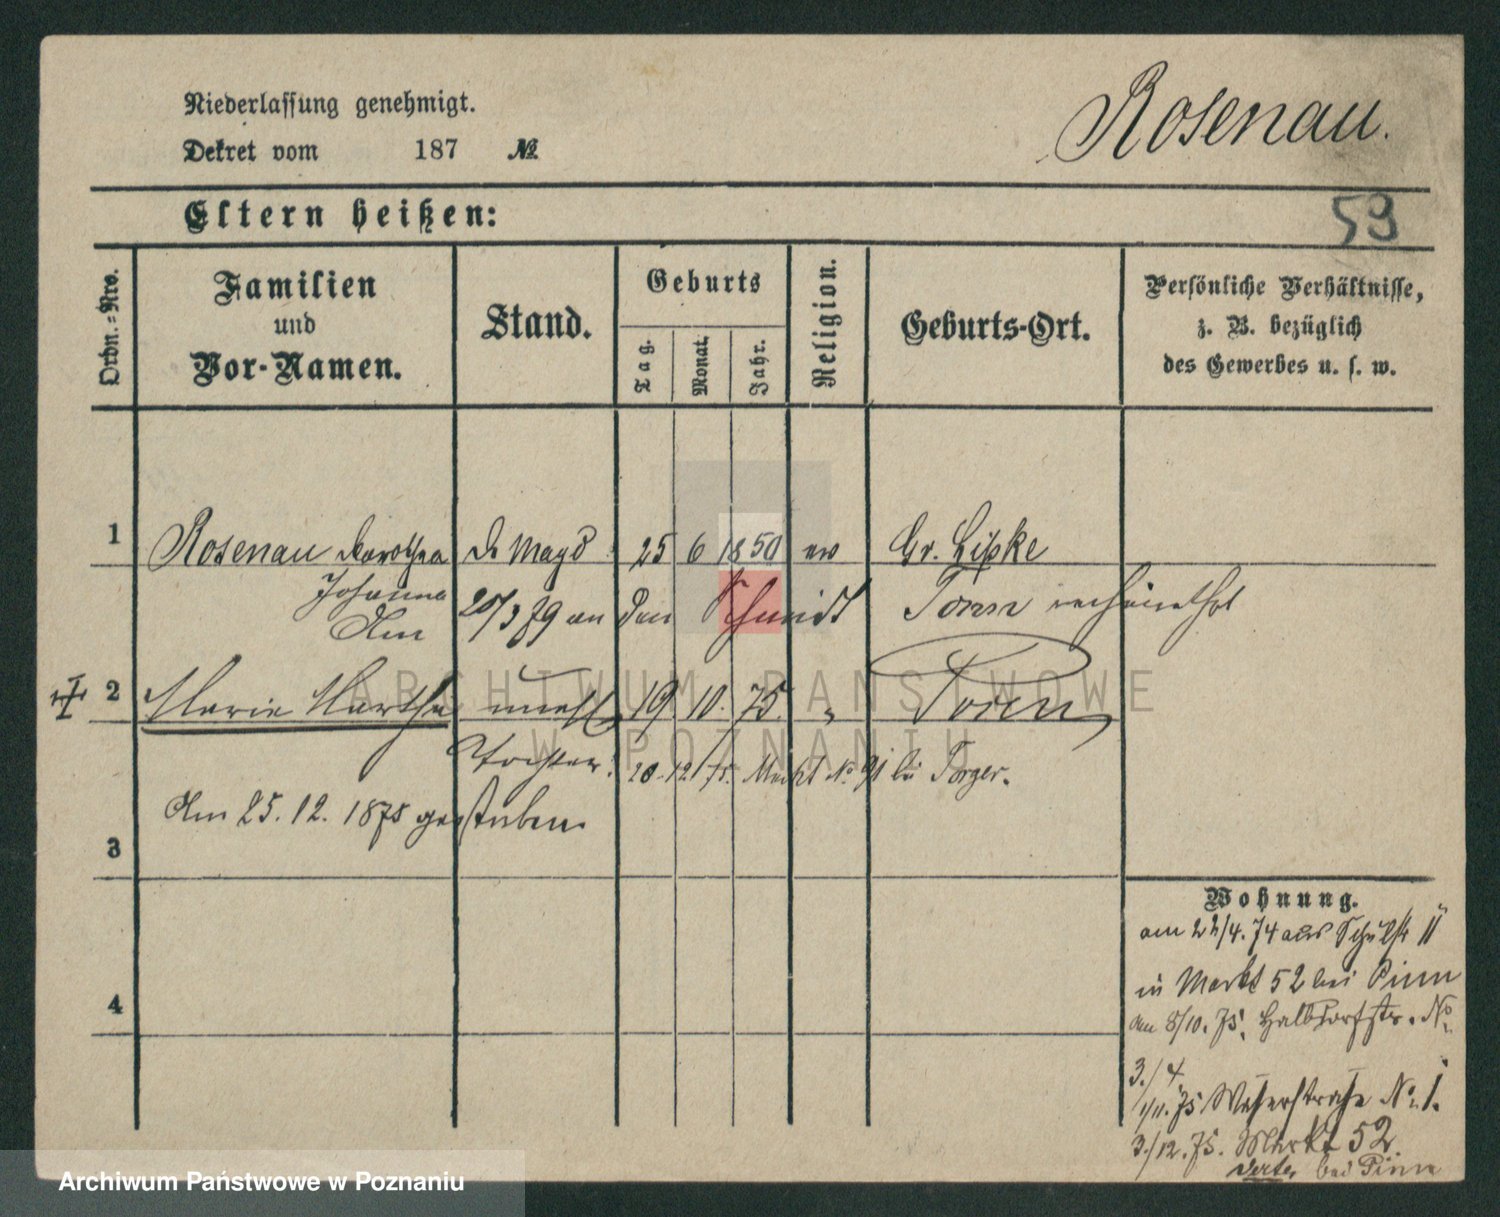 Niederlassung genehmigt.
Rosenau.
Dekret vom 187 №
Eltern heißen:
59
Ordn.-Nro.
Familien
und
Vor-Namen.
Stand.
Geburts
Tag.
Monat.
Jahr.
Religion.
Geburts-Ort.
Persönliche Verhältnisse,
z. B. bezüglich
des Gewerbes u. s. w.
1 Rosenau Dorothea d. Magd 25 6 1850 ev Gr. Lipke
Johanna
Am 20/3 79 an den Schmidt verheirathet
2 Marie Martha unehl 19 10. 75. " Posen
Tochter. 20. 12. 75. Markt No 91 bei
Am 25. 12. 1875 gestorben
3
4
Wohnung.
am 22/4. 74 aus Schulstr 11
in Markt 52 bei Pinn
Am 8/10. 75. Halbdorfstr. No
3./4
/11. 75 Wasserstraße No. 1.
3./12. 75. Markt 52.
bei Pinn
ARCHIWUM PAŃSTWOWE
W POZNANIU
Archiwum Państwowe w Poznaniu